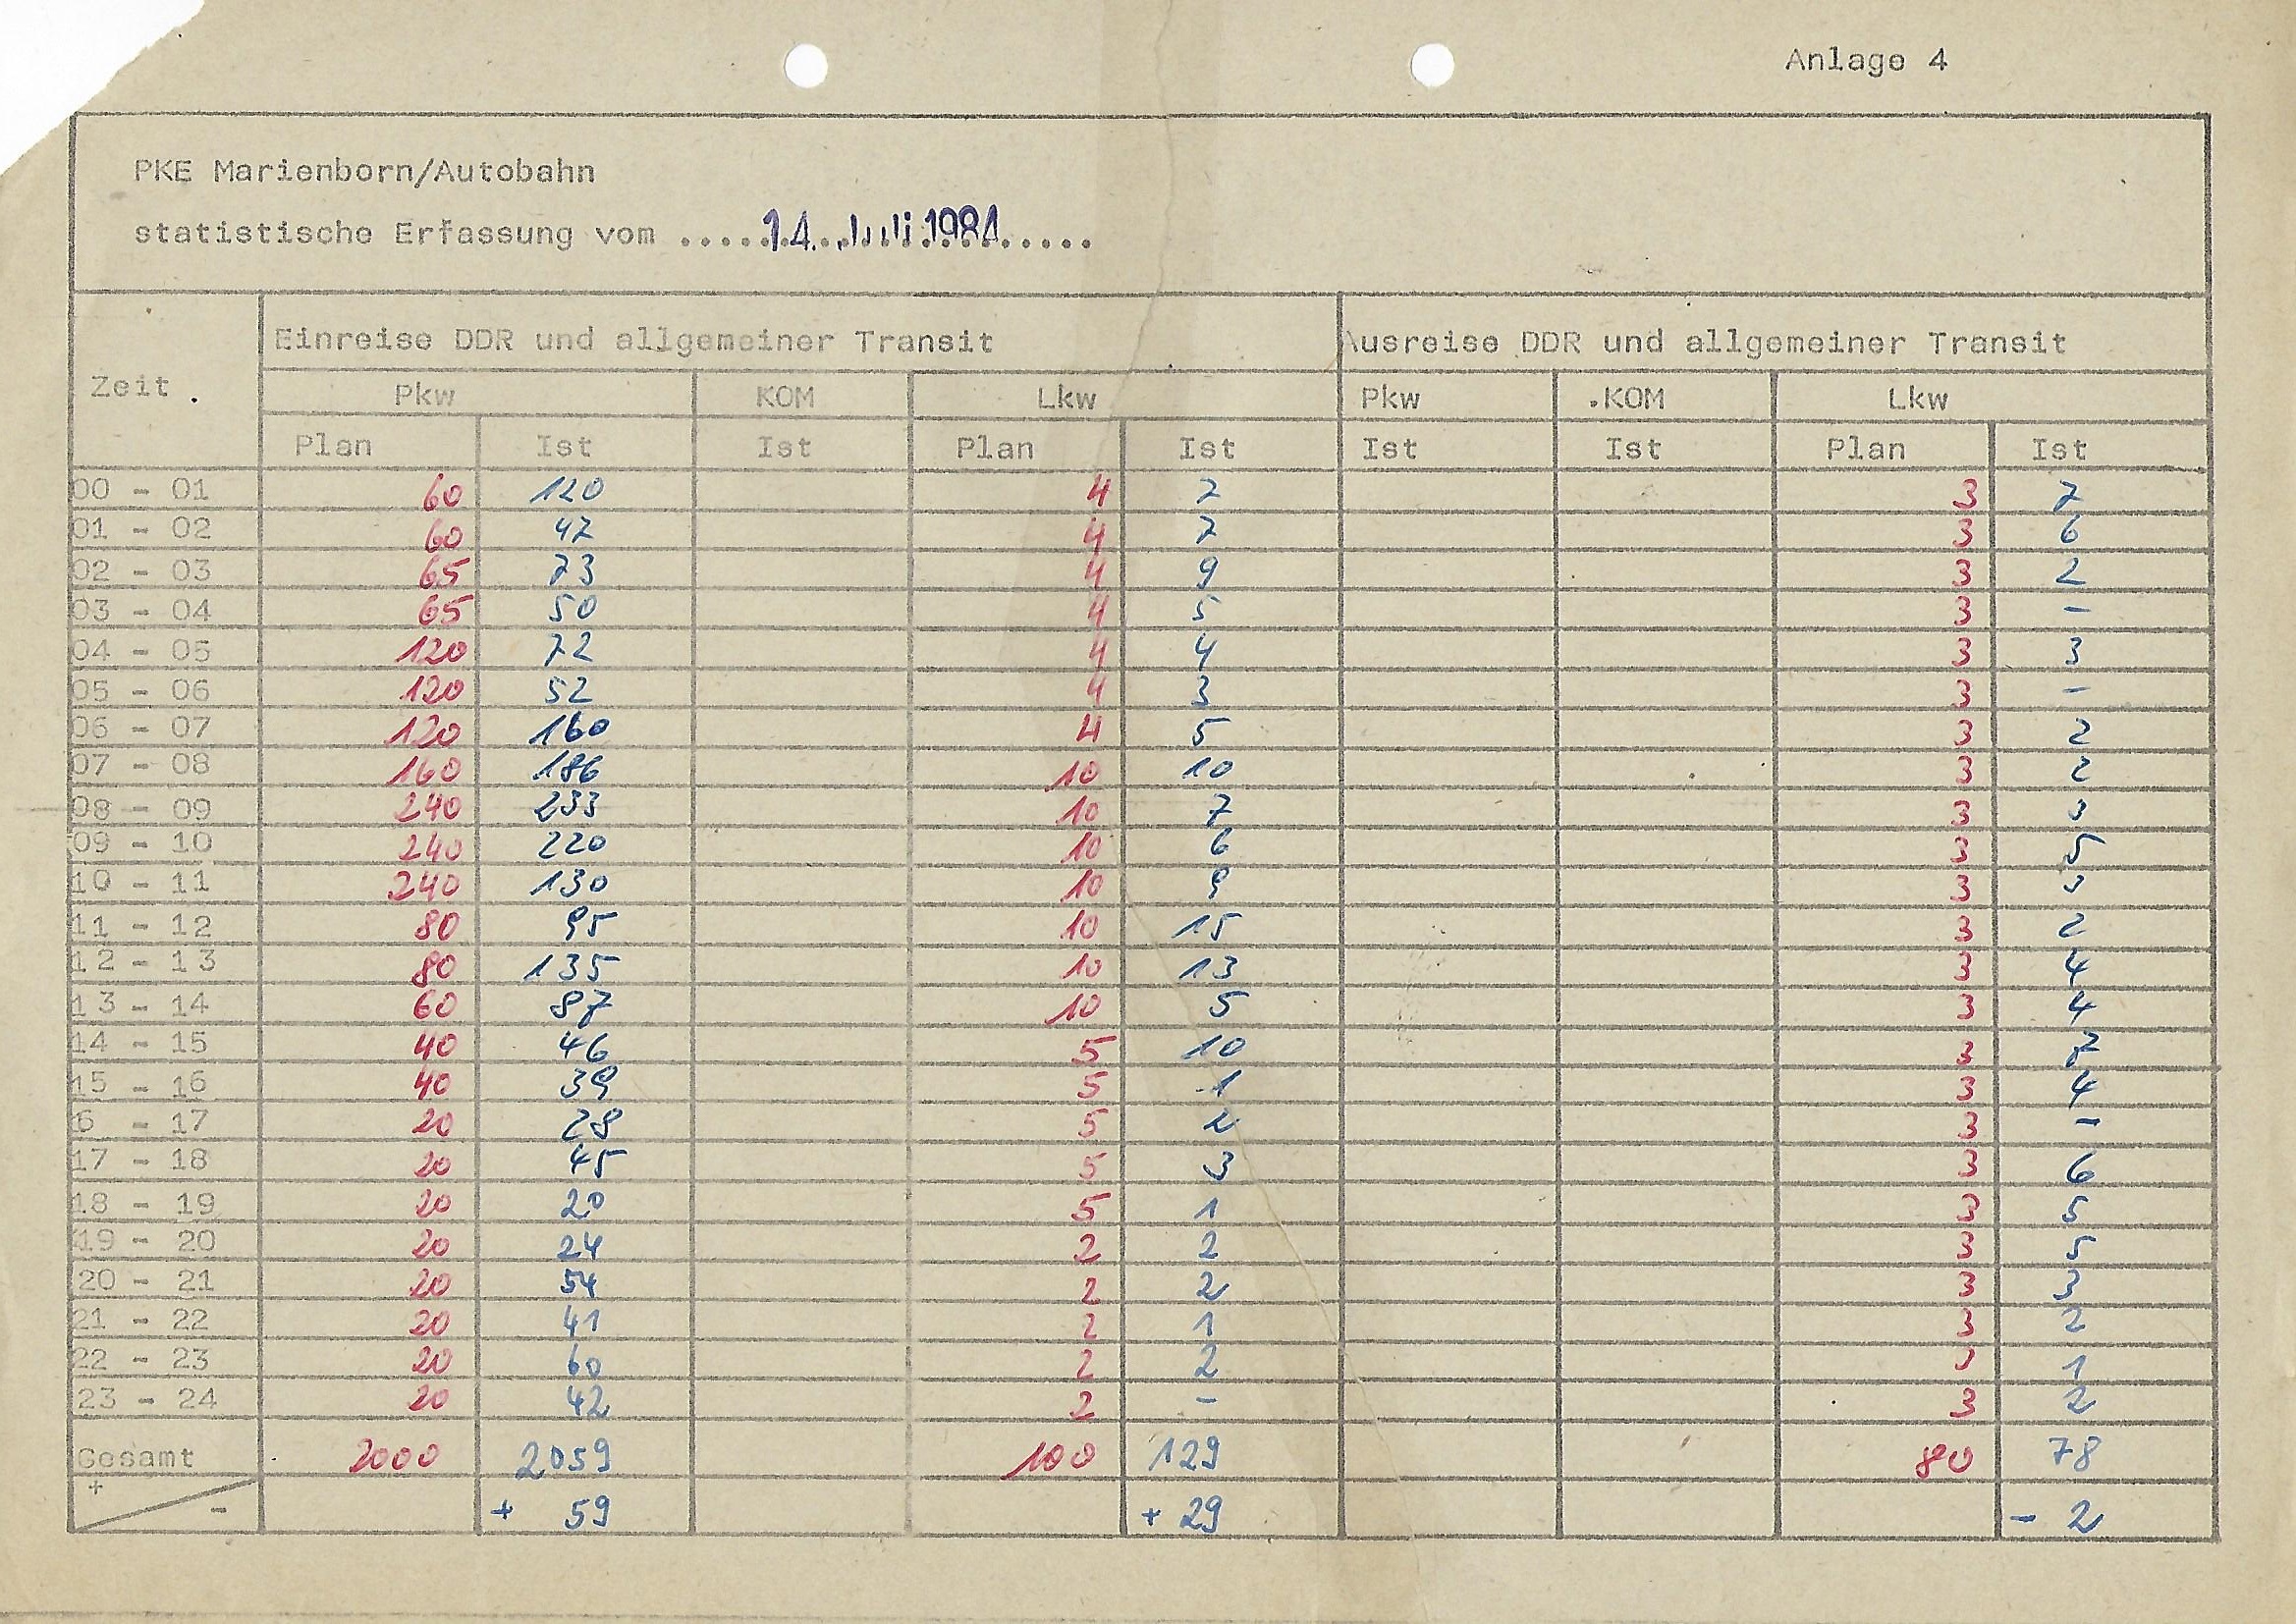 Anlage 4
PKE Marienborn/Autobahn
statistische Erfassung vom .....14. Juli 1981.....
Zeit Einreise DDR und allgemeiner Transit Ausreise DDR und allgemeiner Transit
Pkw KOM Lkw Pkw KOM Lkw
Plan Ist Ist Plan Ist Ist Ist Plan Ist
00 - 01 60 120 4 7 3 7
01 - 02 60 47 4 7 3 6
02 - 03 65 73 4 9 3 2
03 - 04 65 50 4 5 3 -
04 - 05 120 72 4 4 3 3
05 - 06 120 52 4 3 3 -
06 - 07 120 160 4 5 3 2
07 - 08 160 186 10 10 3 2
08 - 09 240 233 10 7 3 3
09 - 10 240 220 10 6 3 5
10 - 11 240 130 10 9 3 3
11 - 12 80 95 10 15 3 2
12 - 13 80 135 10 13 3 4
13 - 14 60 87 10 5 3 4
14 - 15 40 46 5 10 3 7
15 - 16 40 39 5 1 3 4
6 - 17 20 28 5 2 3 -
17 - 18 20 45 5 3 3 6
18 - 19 20 20 5 1 3 5
19 - 20 20 24 2 2 3 5
20 - 21 20 54 2 2 3 3
21 - 22 20 41 2 1 3 2
22 - 23 20 60 2 2 3 1
23 - 24 20 42 2 - 3 2
Gesamt 2000 2059 100 129 80 78
+ - + 59 + 29 - 2